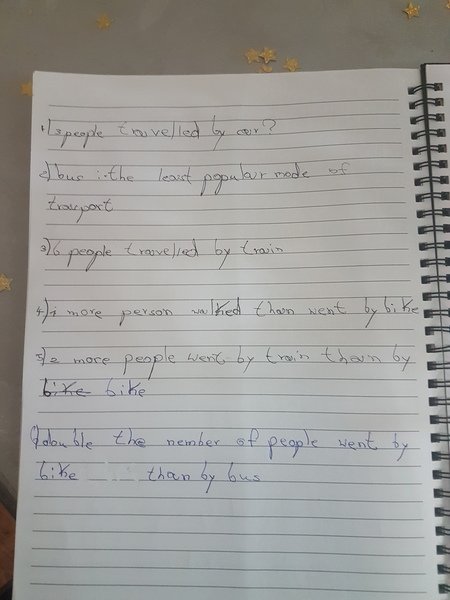 1) 3 people travelled by car?
2) bus is the least popular mode of
trasport
3) 6 people travelled by train
4) 1 more person walked than went by bike
5) 2 more people went by train than by
bike bike
double the nember of people went by
bike than by bus